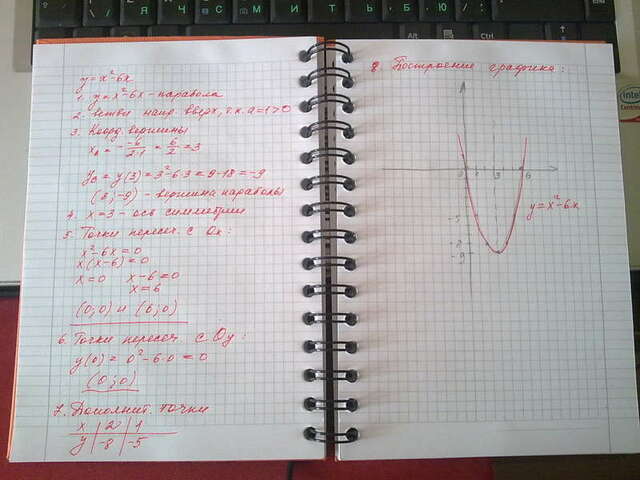 y = x² - 6x
1. y = x² - 6x - парабола
2. ветви напр. вверх, т.к. a = 1 > 0
3. Коорд. вершины
x₀ = - -6/2·1 = 6/2 = 3
y₀ = y(3) = 3² - 6·3 = 9 - 18 = -9
(3; -9) - вершина параболы
4. x = 3 - ось симметрии
5. Точки пересеч. с Ox:
x² - 6x = 0
x(x - 6) = 0
x = 0 x - 6 = 0
x = 6
(0; 0) и (6; 0)
6. Точки пересеч. с Oy:
y(0) = 0² - 6·0 = 0
(0; 0)
7. Дополнит. точки
x | 2 | 1
y | -8 | -5
8. Построение графика:
0 1 3 6
y = x² - 6x
-5
-8
-9
Alt
Ctrl
intel